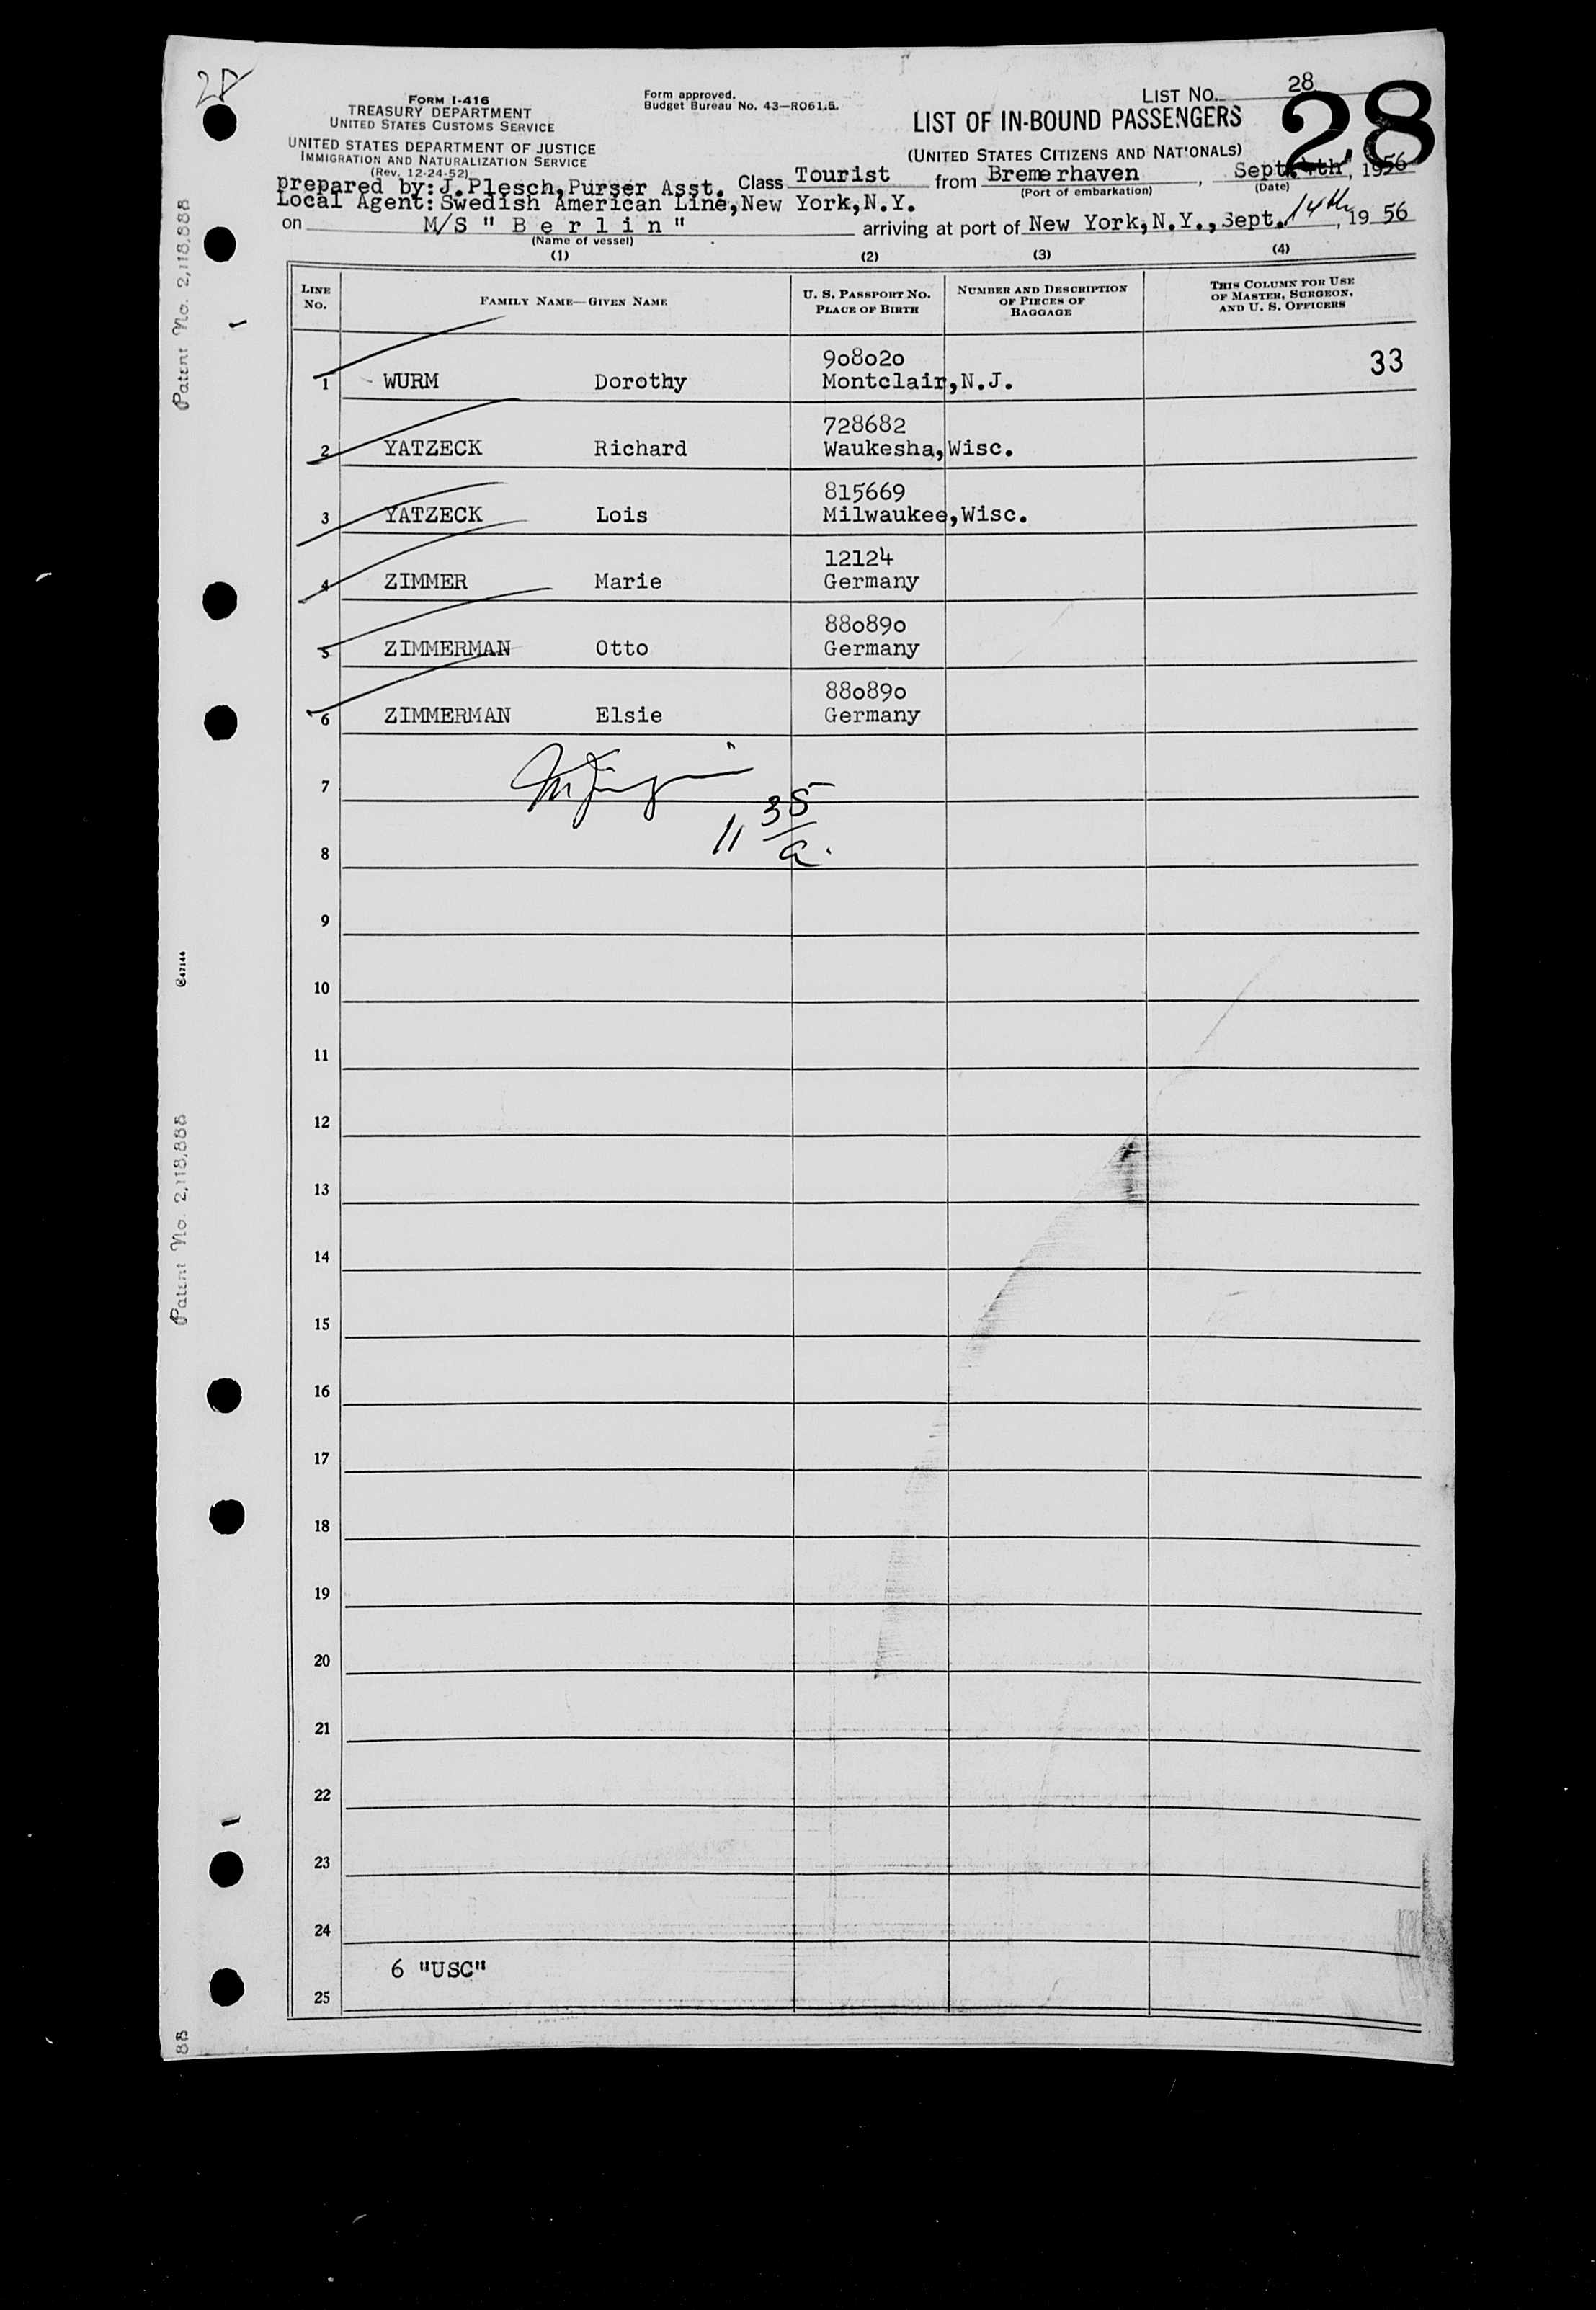 28
FORM I-416
TREASURY DEPARTMENT
UNITED STATES CUSTOMS SERVICE
UNITED STATES DEPARTMENT OF JUSTICE
IMMIGRATION AND NATURALIZATION SERVICE
(Rev. 12-24-52)
Form approved.
Budget Bureau No. 43—RO61.5.
LIST No. 28
28
LIST OF IN-BOUND PASSENGERS
(UNITED STATES CITIZENS AND NATIONALS)
prepared by: J.Plesch,Purser Asst. Class Tourist from Breme rhaven, Sept. 4th, 1956
(Port of embarkation) (Date)
Local Agent: Swedish American Line,New York,N.Y.
on M/S " B e r l i n " arriving at port of New York,N.Y.,Sept. 14th, 19 56
(Name of vessel)
(1) (2) (3) (4)
LINE No. FAMILY NAME—GIVEN NAME U. S. PASSPORT NO. PLACE OF BIRTH NUMBER AND DESCRIPTION OF PIECES OF BAGGAGE THIS COLUMN FOR USE OF MASTER, SURGEON, AND U. S. OFFICERS
908020 33
1 WURM Dorothy Montclair,N.J.
728682
2 YATZECK Richard Waukesha,Wisc.
815669
3 YATZECK Lois Milwaukee,Wisc.
12124
4 ZIMMER Marie Germany
880890
5 ZIMMERMAN Otto Germany
880890
6 ZIMMERMAN Elsie Germany
7
11 35
a.
8
9
10
11
12
13
14
15
16
17
18
19
20
21
22
23
24
6 "USC"
25
Patent No. 2,118,888
C47144
Patent No. 2,118,888
88